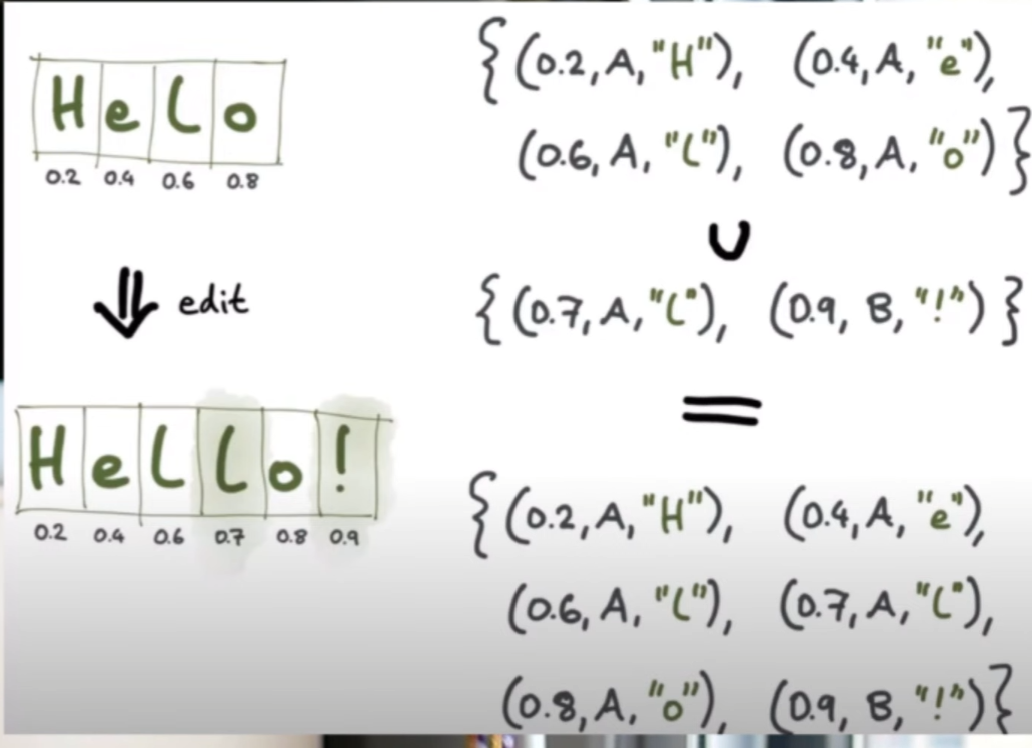 HeLo
0.2 0.4 0.6 0.8
edit
HeLLo!
0.2 0.4 0.6 0.7 0.8 0.9
{(0.2, A, "H"), (0.4, A, "e"),
(0.6, A, "L"), (0.8, A, "o")}
∪
{(0.7, A, "L"), (0.9, B, "!")}
=
{(0.2, A, "H"), (0.4, A, "e"),
(0.6, A, "L"), (0.7, A, "L"),
(0.8, A, "o"), (0.9, B, "!")}